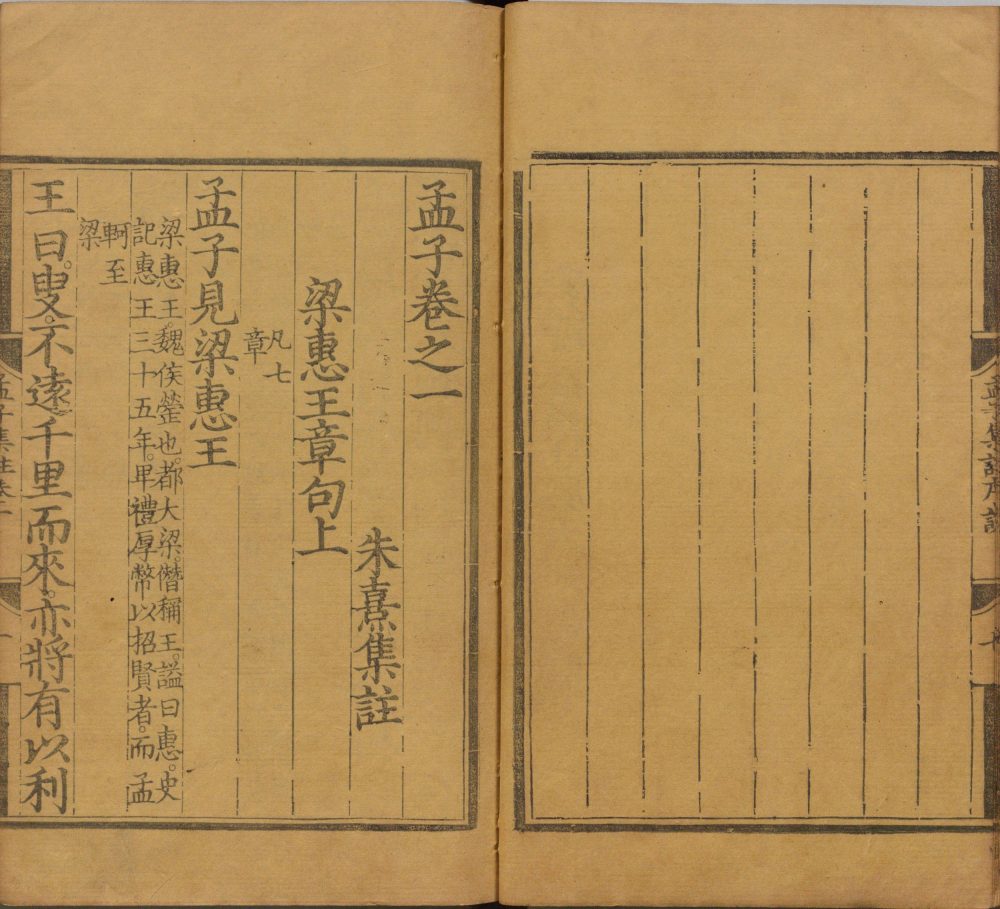 孟子集註序說
孟子卷之一
朱熹集註
梁惠王章句上
凡七
章
孟子見梁惠王
梁惠王。魏侯罃也。都大梁。僭稱王。謚曰惠。史
記惠王三十五年。卑禮厚幣以招賢者。而孟
軻至
梁
王曰。叟。不遠千里而來。亦將有以利
孟子集註卷一
一